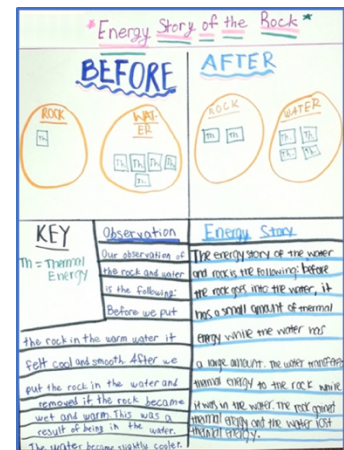 *Energy Story of the Rock*
BEFORE
AFTER
ROCK
Th
WAT-
ER
Th Th Th Th
Th
ROCK
Th Th
WATER
Th Th
Th Th
KEY
Th = Thermal
Energy
Observation
Our observation of
the rock and water
is the following:
Before we put
the rock in the warm water it
felt cool and smooth. After we
put the rock in the water and
removed it the rock became
wet and warm. This was a
result of being in the water.
The water became slightly cooler.
Energy Story
The energy story of the water
and rock is the following: before
the rock goes into the water, it
has a small amount of thermal
energy while the water has
a large amount. The water transferred
thermal energy to the rock while
it was in the water. The rock gained
thermal energy and the water lost
thermal energy.